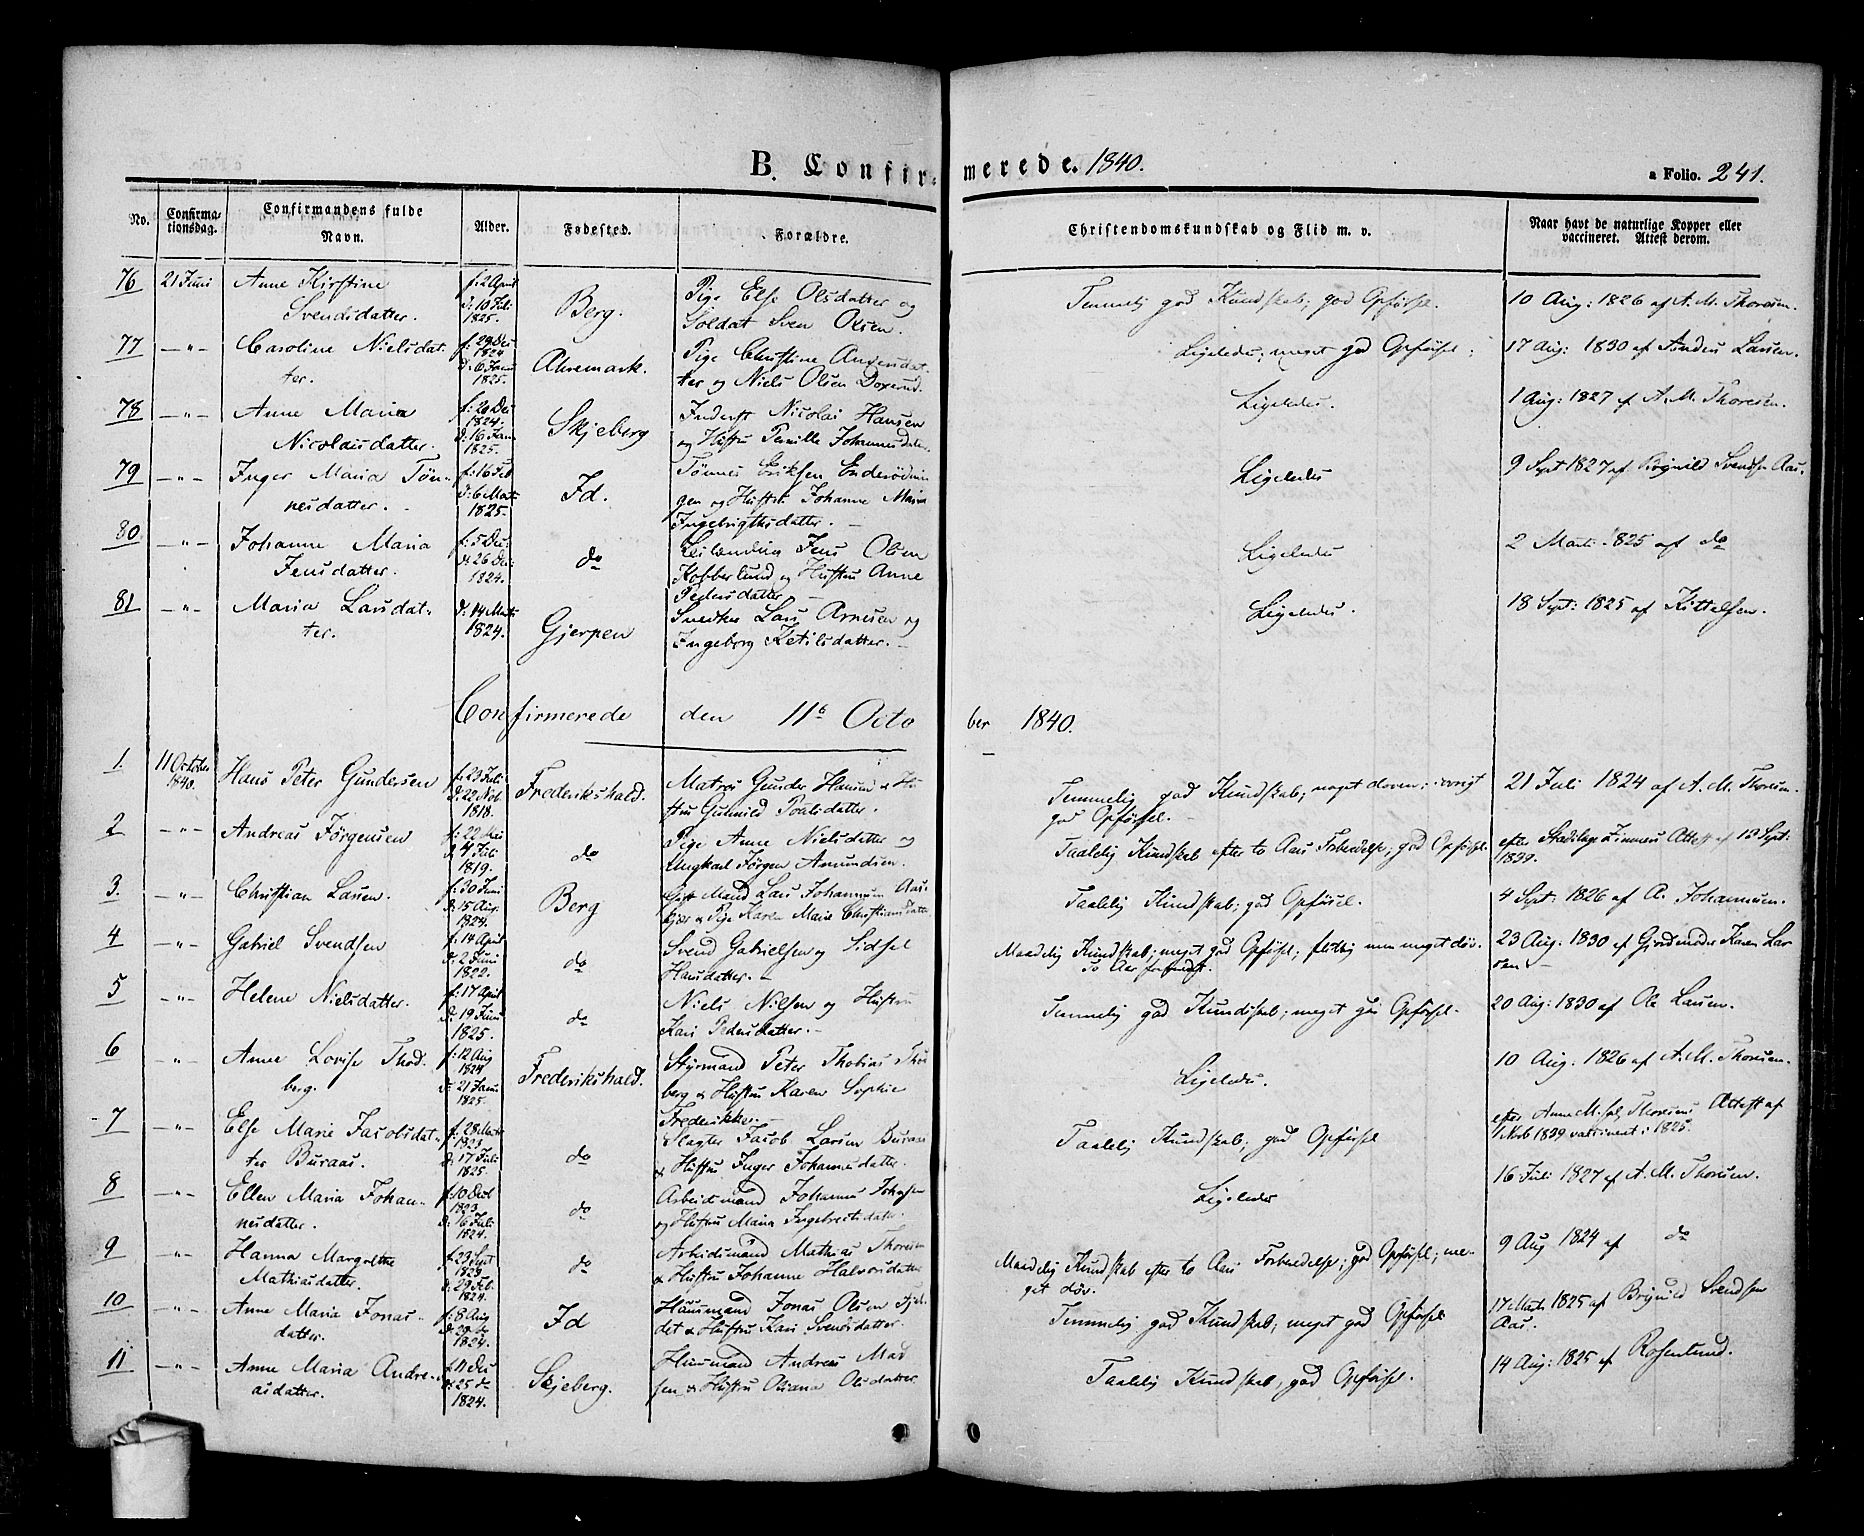 B. Confirmerede. 1840.
a Folio. 241.
No. Confirmationsdag. Confirmandens fulde Navn. Alder. Fødested. Forældre. Christendomskundskab og Flid m. v. Naar havt de naturlige Kopper eller vaccineret. Attest derom.
76 21 Juni Anne Kirstine Svendsdatter. f: 2 April d: 10 Juli 1825. Berg. Pige Else Olsdatter og Soldat Sven Olsen. Temmelig god Kundskab; god Opførsel. 10 Aug: 1826 af A. M. Thoresen.
77 —"— Caroline Nielsdatter. f: 29 Dec 1824 d: 6 Janu 1825. Ahremark. Pige Christine Andersdatter og Niels Olsen Doxrud. Ligeledes; meget god Opførsel; 17 Aug: 1830 af Anders Larsen.
78 —"— Anne Maria Nicolaisdatter. f: 20 Dec 1824. d: 16 Jan 1825. Skjeberg Inderst Nicolai Hansen og Hustru Pernille Johannesdatter. Ligeledes. 1 Aug: 1827 af A. M. Thoresen.
79 —"— Inger Maria Tönnesdatter. f: 16 Feb d: 6 Marts 1825. Id. Tønnes Eriksen Enderødningen og Hustr. Johanne Maria Ingebrigtsdatter. Ligeledes 9 Sept 1827 af Brynild Svendsen Aas
80 —"— Johanne Maria Jensdatter. f: 5 Dec: d: 26 Dec: 1824. do Jens Olsen Kobberlund og Hustru Anne Pedersdatter. Ligeledes 2 Marts 1825 af do
81 —"— Maria Larsdatter. d: 14 Marts 1824. Gjerpen Snedker Lars Arnesen og Ingeborg Ketilsdatter. Ligeledes. 18 Sept: 1825 af Kittelsen.
Confirmerede den 11te October 1840.
1. 11 October 1840. Hans Peter Gundersen f: 23 Juli d: 22 Nob 1818. Frederikshald. Matros Gunder Hansen & Hustru Gunild Poulsdatter. Temmelig god Kundskab; noget doven; iøvrigt god Opførsel. 21 Juli 1824 af A. M. Thoresen.
2 —"— Andreas Jørgensen f: 22 Mai d: 4 Juli 1819. do Pige Anne Nielsdatter og Ungkarl Jörgen Amundsen. Taalelig Kundskab efter to Aars Forberedelse; god Opførsel. efter Stadslæge Zimmers Attest af 13 Sept: 1839.
3. —"— Christian Larsen. f: 30 Juni d: 15 Aug. 1824. Berg Gift Mand Lars Johannesen Aaskjær & Pige Karen Marie Christiansdatter. Taalelig Kundskab; god Opførsel. 4 Sept: 1826 af A. Johannesen.
4 —"— Gabriel Svendsen f: 14 April d. 2 Juni 1822. do Svend Gabrielsen og Sidsel Hansdatter. Maadelig Kundskab; meget god Opførsel; flittig men meget döv. To Aar forberedt. 23 Aug. 1830 af Gjordemoder Karen Larsen
5 —"— Helene Nielsdatter. f: 17 April d. 19 Juni 1825. do Niels Nilsen og Hustru Kari Pedersdatter. Temmelig god Kundskab; meget god Opførsel. 20 Aug: 1830 af Ole Larsen.
6 —"— Anne Lovise Thodberg. f: 12 Aug 1824 d: 21 Janu 1825. Frederikshald. Styrmand Peter Thobias Thodberg & Hustru Karen Sophie Frederikke. Ligeledes. 10 Aug. 1826 af A. M. Thoresen.
7 —"— Else Marie Jacobsdatter Buraas. f. 28 Marts d. 17 Juli 1825. do Slagter Jacob Larsen Buraas & Hustru Inger Johannesdatter. Taalelig Kundskab, god Opførsel efter Anne M. sal. Thoresens Attest af 1 Nob 1839 vaccineret i 1825.
8 —"— Ellen Maria Johannesdatter. f: 10 Octob 1823 d: 16 Juli 1824. do Arbeidsmand Johannes Johnsen og Hustru Maria Ingebretsdatter. Ligeledes 16 Juli 1827 af A. M. Thoresen.
9 —"— Hanna Margrethe Mathiasdatter. f: 23 Sept 1823 d: 29 Feb. 1824. do Arbeidsmand Mathias Thoresen & Hustru Johanne Halvorsdatter Maadelig Kundskab efter to Aars Forberedelse; god Opførsel; meget döv. 9 Aug 1824 af do
10 —"— Anne Maria Jonasdatter. f: 8 Aug d: 30 do 1824. Id Huusmand Jonas Olsen Fjeldet & Hustru Kari Svendsdatter. Temmelig god Kundskab; meget god Opførsel 17 Marts 1825 af Brynild Svendsen Aas.
11 —"— Anne Maria Andreasdatter. f: 11 Dec d: 25 do 1824. Skjeberg. Huusmand Andreas Madsen & Hustru Oliana Olsdatter Taalelig Kundskab, god Opførsel. 14 Aug: 1825 af Rosenlund.